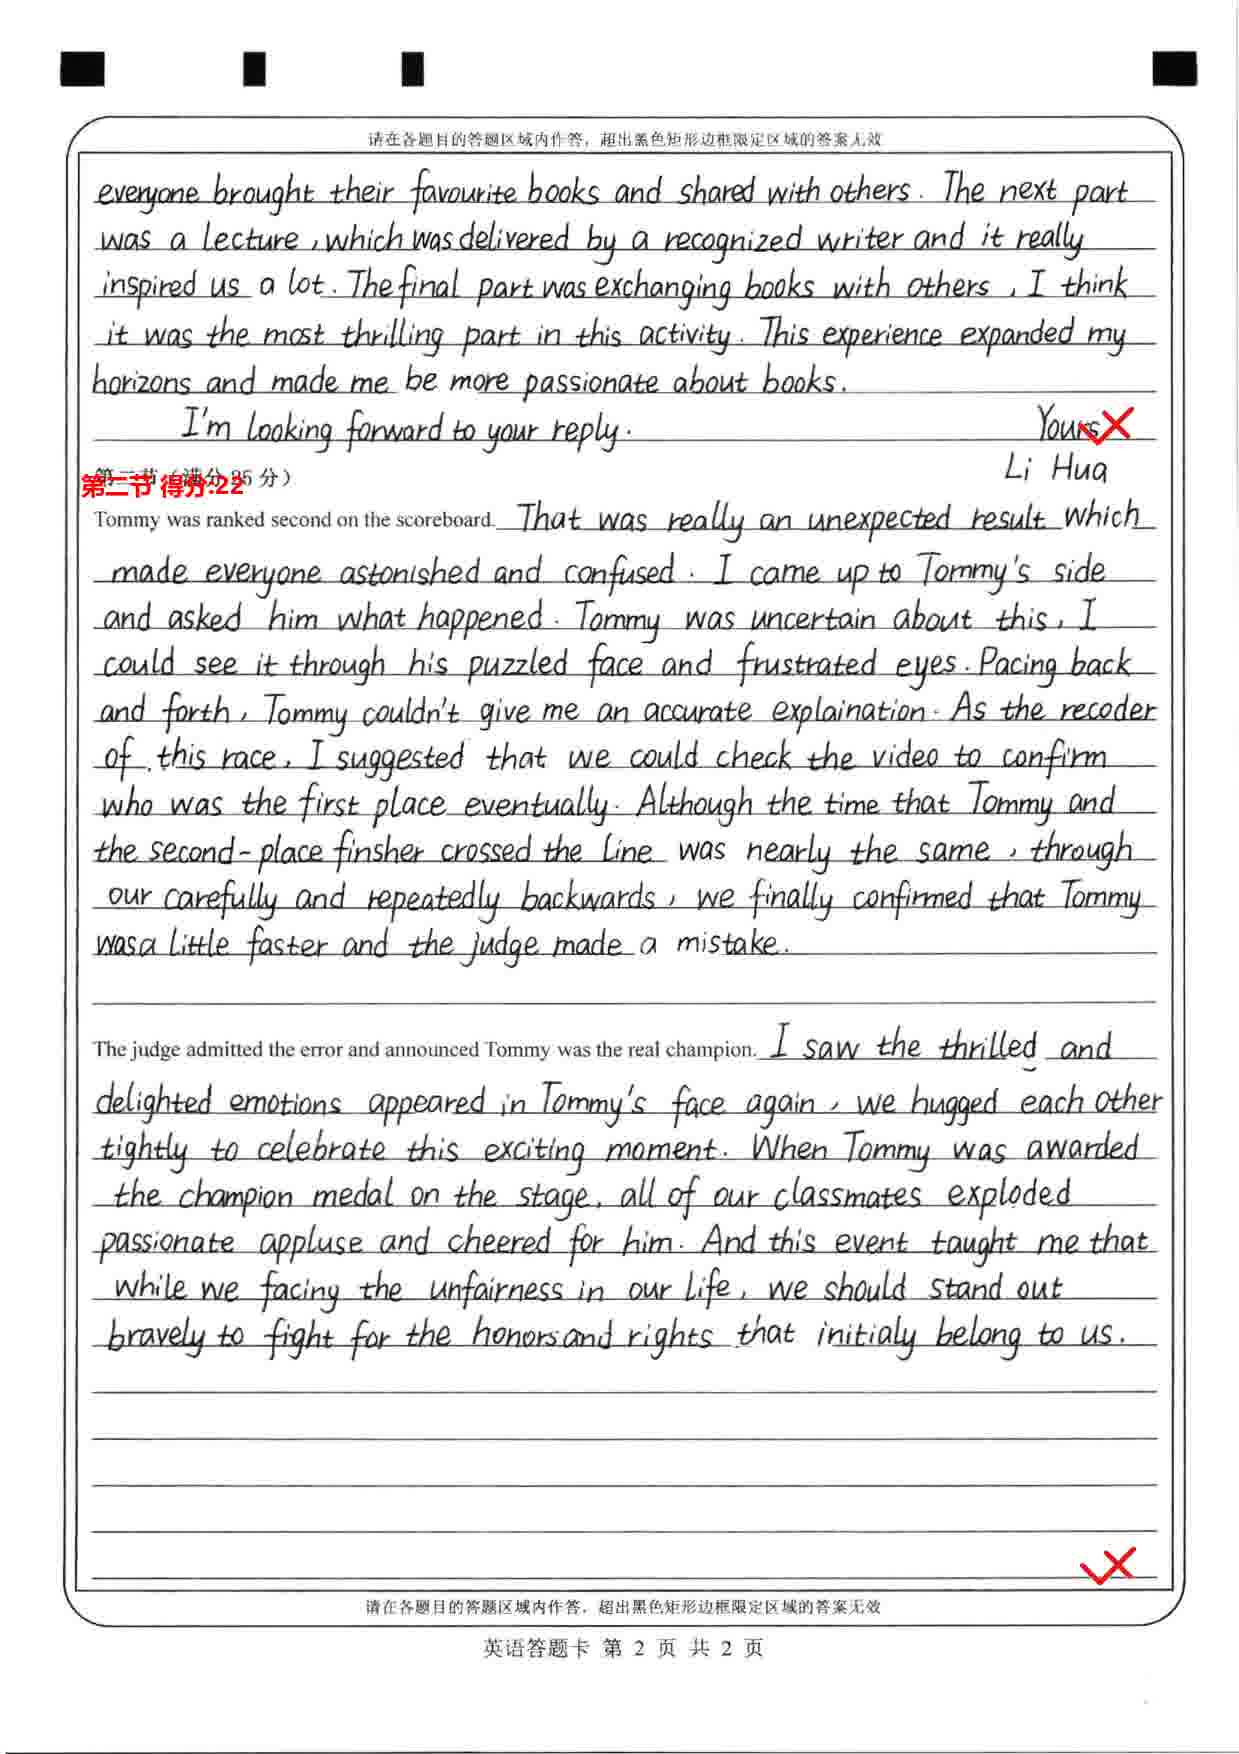 请在各题目的答题区域内作答，超出黑色矩形边框限定区域的答案无效
everyone brought their favourite books and shared with others. The next part
was a lecture, which was delivered by a recognized writer and it really
inspired us a lot. The final part was exchanging books with others, I think
it was the most thrilling part in this activity. This experience expanded my
horizons and made me be more passionate about books.
I'm looking forward to your reply. Yours
第二节（满分25分）
第二节 得分:22
Li Hua
Tommy was ranked second on the scoreboard. That was really an unexpected result which
made everyone astonished and confused. I came up to Tommy's side
and asked him what happened. Tommy was uncertain about this, I
could see it through his puzzled face and frustrated eyes. Pacing back
and forth, Tommy couldn't give me an accurate explaination. As the recoder
of this race, I suggested that we could check the video to confirm
who was the first place eventually. Although the time that Tommy and
the second-place finsher crossed the line was nearly the same, through
our carefully and repeatedly backwards, we finally confirmed that Tommy
was a little faster and the judge made a mistake.
The judge admitted the error and announced Tommy was the real champion. I saw the thrilled and
delighted emotions appeared in Tommy's face again, we hugged each other
tightly to celebrate this exciting moment. When Tommy was awarded
the champion medal on the stage, all of our classmates exploded
passionate appluse and cheered for him. And this event taught me that
while we facing the unfairness in our life, we should stand out
bravely to fight for the honors and rights that initialy belong to us.
请在各题目的答题区域内作答，超出黑色矩形边框限定区域的答案无效
英语答题卡 第 2 页 共 2 页